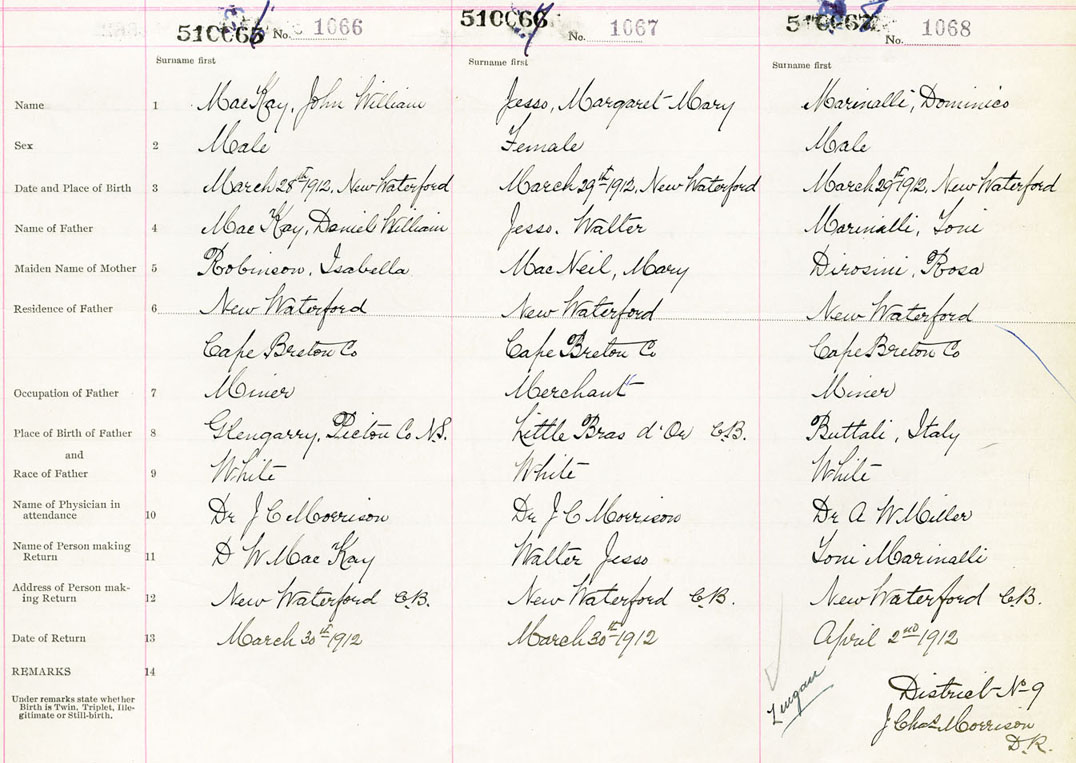 510065 No. 1066 510066 No. 1067 510067 No. 1068
Surname first Surname first Surname first
Name 1 MacKay, John William Jesso, Margaret Mary Marinalli, Dominico
Sex 2 Male Female Male
Date and Place of Birth 3 March 28th 1912, New Waterford March 29th 1912, New Waterford March 29th 1912, New Waterford
Name of Father 4 MacKay, Daniel William Jesso, Walter Marinalli, Toni
Maiden Name of Mother 5 Robinson, Isabella MacNeil, Mary Dirosini, Rosa
Residence of Father 6 New Waterford New Waterford New Waterford
Cape Breton Co Cape Breton Co Cape Breton Co
Occupation of Father 7 Miner Merchant Miner
Place of Birth of Father 8 Glengarry, Picton Co N.S. Little Bras d'Or C.B. Buttali, Italy
and
Race of Father 9 White White White
Name of Physician in
attendance 10 Dr J C Morrison Dr J C Morrison Dr A W Miller
Name of Person making
Return 11 D W MacKay Walter Jesso Toni Marinalli
Address of Person mak-
ing Return 12 New Waterford C.B. New Waterford C.B. New Waterford C.B.
Date of Return 13 March 30th 1912 March 30th 1912 April 2nd 1912
REMARKS 14
Under remarks state whether
Birth is Twin, Triplet, Ille-
gitimate or Still-birth.
Lingan
District No 9
J Chas Morrison
D.R.